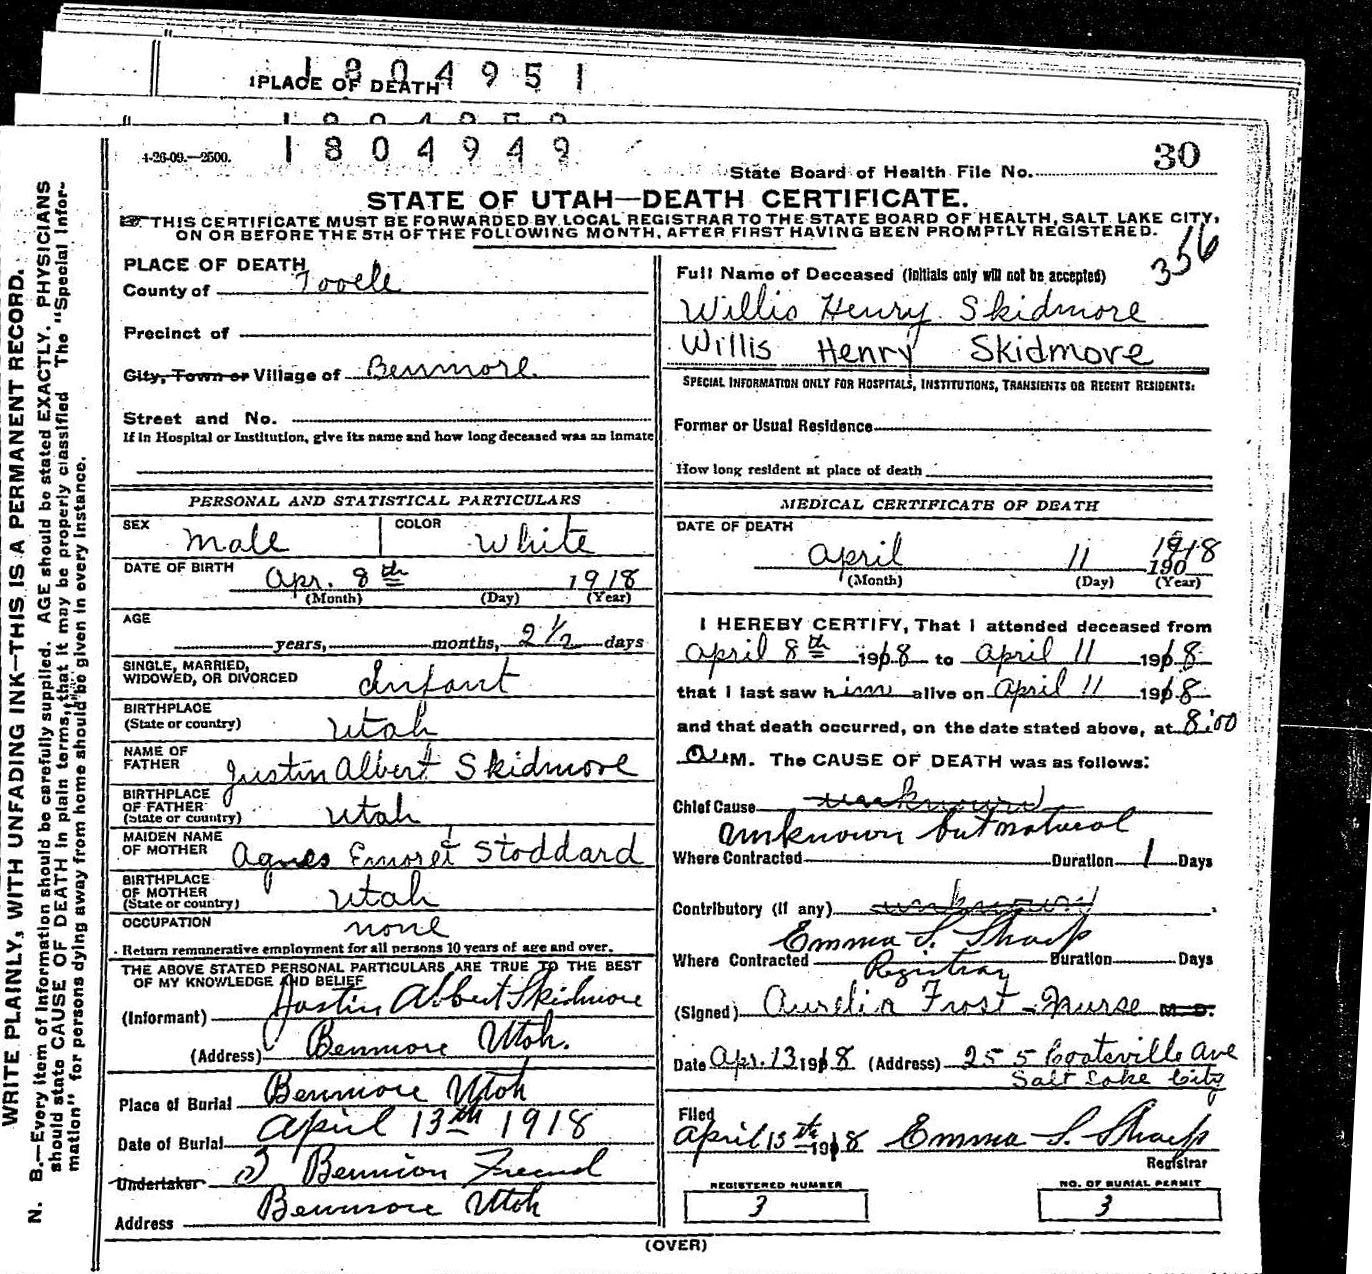 1804951
1PLACE OF DEATH
1804949
4-26-09.—2500.
30
State Board of Health File No.
STATE OF UTAH—DEATH CERTIFICATE.
THIS CERTIFICATE MUST BE FORWARDED BY LOCAL REGISTRAR TO THE STATE BOARD OF HEALTH, SALT LAKE CITY,
ON OR BEFORE THE 5TH OF THE FOLLOWING MONTH, AFTER FIRST HAVING BEEN PROMPTLY REGISTERED.
356
WRITE PLAINLY, WITH UNFADING INK—THIS IS A PERMANENT RECORD.
N. B.—Every item of information should be carefully supplied. AGE should be stated EXACTLY. PHYSICIANS
should state CAUSE OF DEATH in plain terms, that it may be properly classified The "Special Infor-
mation" for persons dying away from home should be given in every instance.
PLACE OF DEATH
County of Tooele
Precinct of
City, Town or Village of Bennmore
Street and No.
If in Hospital or Institution, give its name and how long deceased was an inmate
PERSONAL AND STATISTICAL PARTICULARS
SEX Male COLOR White
DATE OF BIRTH Apr. 8th 1918
(Month) (Day) (Year)
AGE years, months, 2 1/2 days
SINGLE, MARRIED,
WIDOWED, OR DIVORCED Infant
BIRTHPLACE
(State or country) Utah
NAME OF
FATHER Justin Albert Skidmore
BIRTHPLACE
OF FATHER
(State or country) Utah
MAIDEN NAME
OF MOTHER Agnes Emoret Stoddard
BIRTHPLACE
OF MOTHER
(State or country) Utah
OCCUPATION none
Return remunerative employment for all persons 10 years of age and over.
THE ABOVE STATED PERSONAL PARTICULARS ARE TRUE TO THE BEST
OF MY KNOWLEDGE AND BELIEF
(Informant) Justin Albert Skidmore
(Address) Benmore Utah.
Place of Burial Benmore Utah
Date of Burial April 13th 1918
Undertaker Bennion Friend
Address Benmore Utah
Full Name of Deceased (Initials only will not be accepted)
Willis Henry Skidmore
Willis Henry Skidmore
SPECIAL INFORMATION ONLY FOR HOSPITALS, INSTITUTIONS, TRANSIENTS OR RECENT RESIDENTS:
Former or Usual Residence
How long resident at place of death
MEDICAL CERTIFICATE OF DEATH
DATE OF DEATH
April 11 1918
190
(Month) (Day) (Year)
I HEREBY CERTIFY, That I attended deceased from
April 8th 1918 to April 11 1918
that I last saw him alive on April 11 1918
and that death occurred, on the date stated above, at 8:00
a.M. The CAUSE OF DEATH was as follows:
Chief Cause unknown
unknown but natural
Where Contracted Duration 1 Days
Contributory (if any) unknown
Emma S. Sharp
Where Contracted Registrar Duration Days
(Signed) Aurelia Frost - Nurse M. D.
Date Apr. 13 1918 (Address) 255 Coatsville Ave
Salt Lake City
Filed
April 13th 1918 Emma S. Sharp
Registrar
REGISTERED NUMBER
3
NO. OF BURIAL PERMIT
3
(OVER)